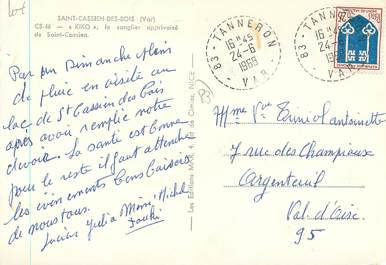 SAINT-CASSIEN-DES-BOIS (Var)
CS-66 — « KIKO », le sanglier apprivoisé
de Saint-Cassien.
Par un Dimanche plein
de pluie en visite au
lac de St Cassien des Bois
après avoir remplie notre
devoir. la santé est bonne
pour le reste il faut attendre
les événements Bons Baisers
de nous tous.
Lucien Julia Mimi, Michel
Les Editions MAR, 4, rue de Carras, NICE
83 - TANNERON
16 H 45
24-6
1968
VAR
83 - TANNERON
16 H 45
24-6
VAR
83
Mme Vve Antoinette
7 rue des Champioux
Argenteuil
Val d'Oise
95